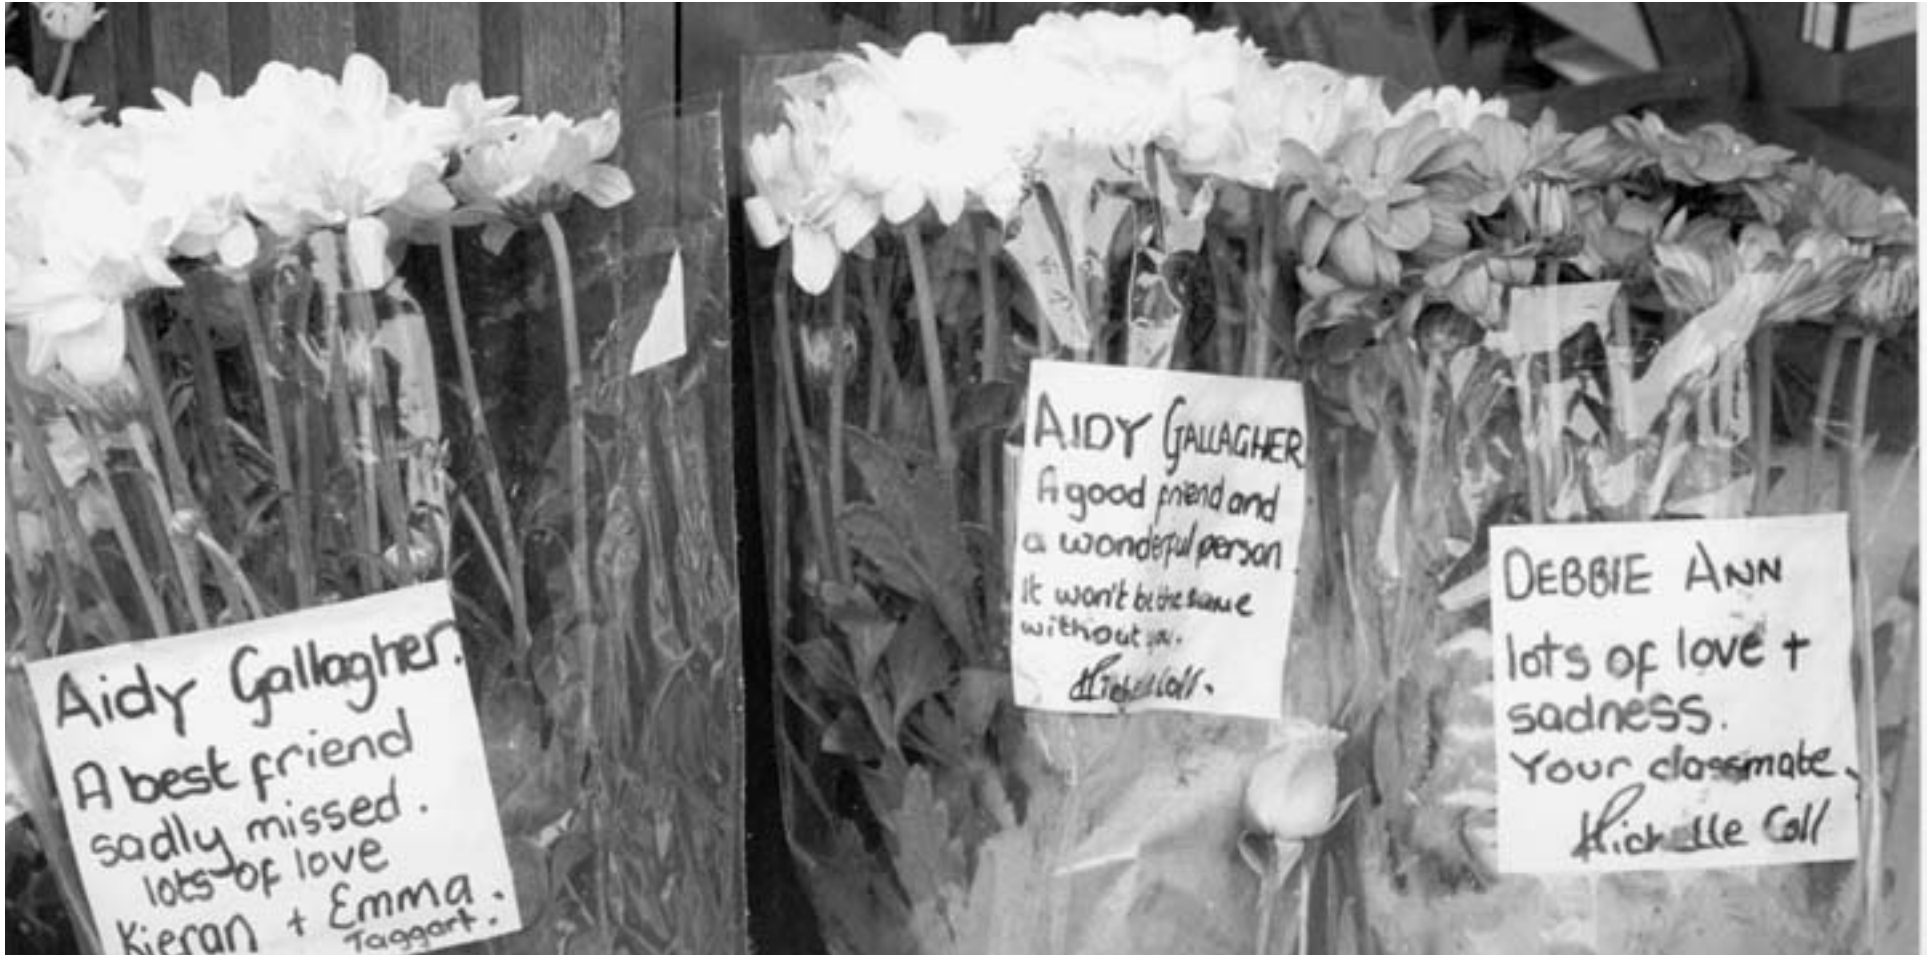 Aidy Gallagher.
A best friend
sadly missed.
lots of love
Kieran + Emma.
Taggart.
AIDY GALLAGHER
A good friend and
a wonderful person
It won't be the same
without you.
Michelle Coll.
DEBBIE ANN
lots of love +
sadness.
Your classmate.
Michelle Coll